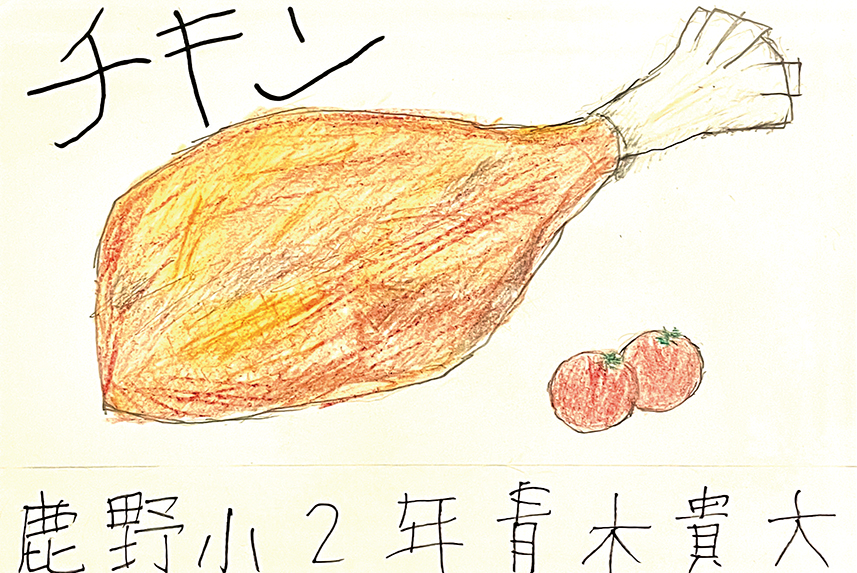 チキン
鹿野小2年青木貴大